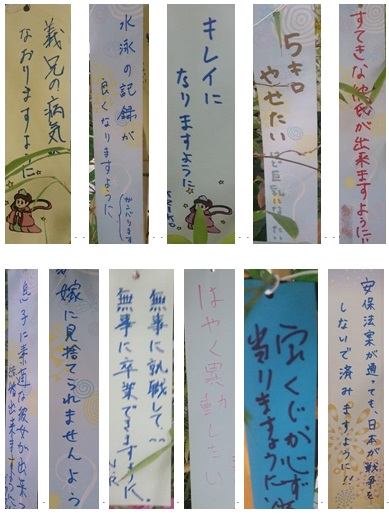 義兄の病気が
なおりますように
水泳の記録が
良くなりますように
がんばります
キレイに
なりますように
5キロ
やせたい
すてきな彼氏が出来ますように!!
息子に素適な彼女が出来
嫁に見捨てられませんよう
無事に就職して
無事に卒業できますように
はやく異動したい
宝くじが必ず
当りますように
安保法案が通っても、日本が戦争を
しないで済みますように!!